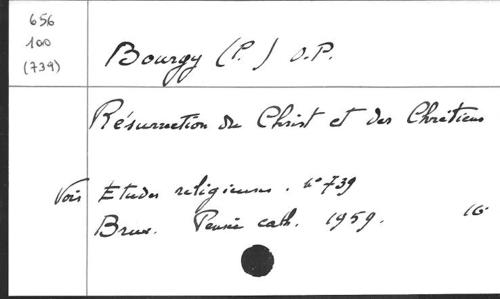 656
100
(739)
Bourgy (P.) O.P.
Résurrection du Christ et des Chrétiens
Voir Etudes religieuses. n° 739
Brux. Pensée cath. 1959. 16°